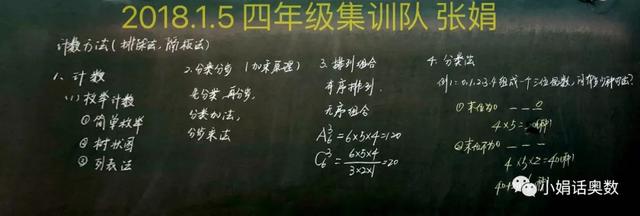 2018.1.5 四年级集训队 张娟
计数方法(排除法.隔板法)
1、计数
(1)枚举计数
①简单枚举
②树状图
③列表法
2.分类分步(加乘原理)
先分类.再分步.
分类加法,
分步乘法
3.排列组合
有序排列.
无序组合
A₆³=6×5×4=120
C₆³=6×5×4/3×2×1=20
4.分类法
例1:0.1.2.3.4组成一个三位偶数,
①末位为0 _ _ 0
4×5=
②末位不为0 _ _ _
4×5×2=40(种)
小娟话奥数